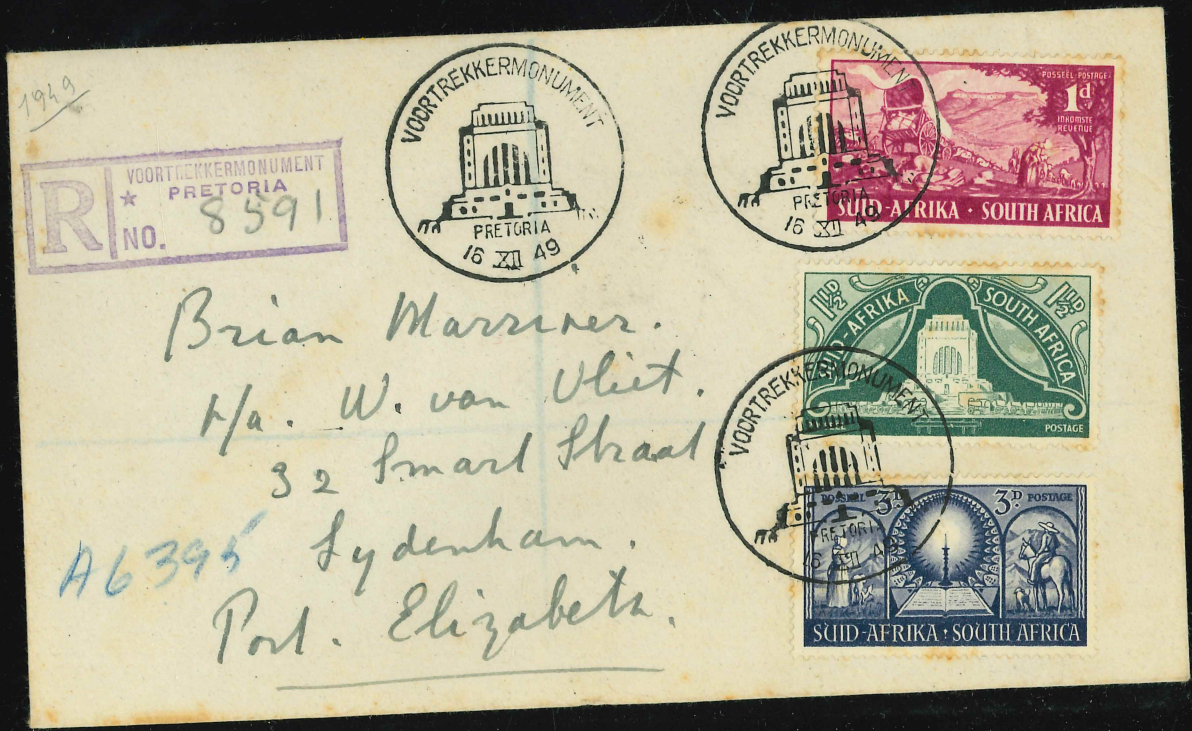 1949
R
VOORTREKKERMONUMENT
* PRETORIA
NO. 8591
VOORTREKKERMONUMENT
PRETORIA
16 XII 49
VOORTREKKERMONUMENT
PRETORIA
16 XII 49
POSSEEL POSTAGE
1d
INKOMSTE
REVENUE
SUID-AFRIKA · SOUTH AFRICA
1½D SUID-AFRIKA SOUTH AFRICA 1½D
POSTAGE
VOORTREKKERMONUMENT
PRETORIA
16 XII 49
POSSEEL 3D 3D POSTAGE
SUID-AFRIKA · SOUTH AFRICA
Brian Marriner.
W. van Vliet.
32 Smart Straat
Sydenham.
Port. Elizabeth.
A6395